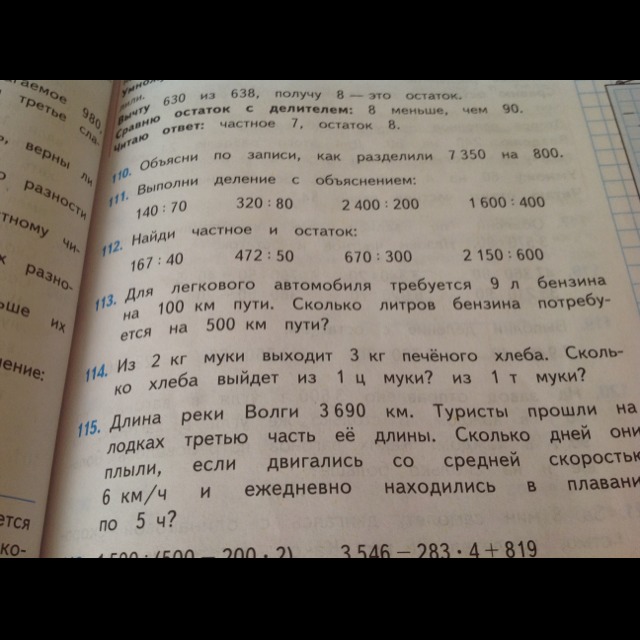 гаемое 980,
третье сла-
верны ли
разности
тному чи-
разно-
ьше их
ение:
ется
ко-
Вычту 630 из 638, получу 8 — это остаток.
Сравню остаток с делителем: 8 меньше, чем 90.
Читаю ответ: частное 7, остаток 8.
110. Объясни по записи, как разделили 7 350 на 800.
111. Выполни деление с объяснением:
140 : 70 320 : 80 2 400 : 200 1 600 : 400
112. Найди частное и остаток:
167 : 40 472 : 50 670 : 300 2 150 : 600
113. Для легкового автомобиля требуется 9 л бензина
на 100 км пути. Сколько литров бензина потребу-
ется на 500 км пути?
114. Из 2 кг муки выходит 3 кг печёного хлеба. Сколь-
ко хлеба выйдет из 1 ц муки? из 1 т муки?
115. Длина реки Волги 3 690 км. Туристы прошли на
лодках третью часть её длины. Сколько дней они
плыли, если двигались со средней скоростью
6 км/ч и ежедневно находились в плавани
по 5 ч?
1 500 : (500 − 200 · 2) 3 546 − 283 · 4 + 819